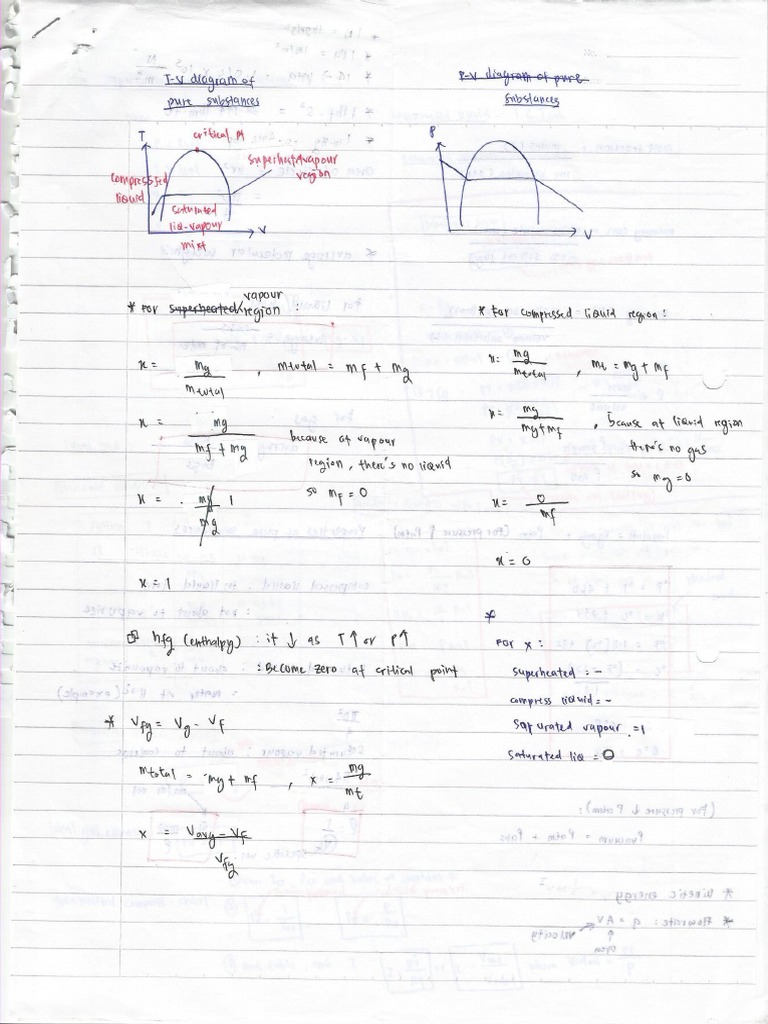 T-V diagram of
pure substances
P-V diagram of pure
substances
T
critical pt
superheated vapour
region
compressed
liquid
saturated
liq-vapour
mixt
V
P
V
* For superheated vapour region :
x = mg / mtotal , mtotal = mf + mg
x = mg / mf + mg because at vapour
region, there's no liquid
so mf = 0
x = mg / mg 1
x = 1
hfg (enthalpy) : it ↓ as T↑ or P↑
: Become zero at critical point
* Vfg = Vg - Vf
mtotal = mg + mf , x = mg / mt
x = Vavg - Vf / Vfg
* For compressed liquid region :
x = mg / mtotal , mt = mg + mf
x = mg / mg + mf , because at liquid region
there's no gas
so mg = 0
x = 0 / mf
x = 0
*
For x :
superheated : -
compress liquid = -
saturated vapour = 1
saturated liq = 0